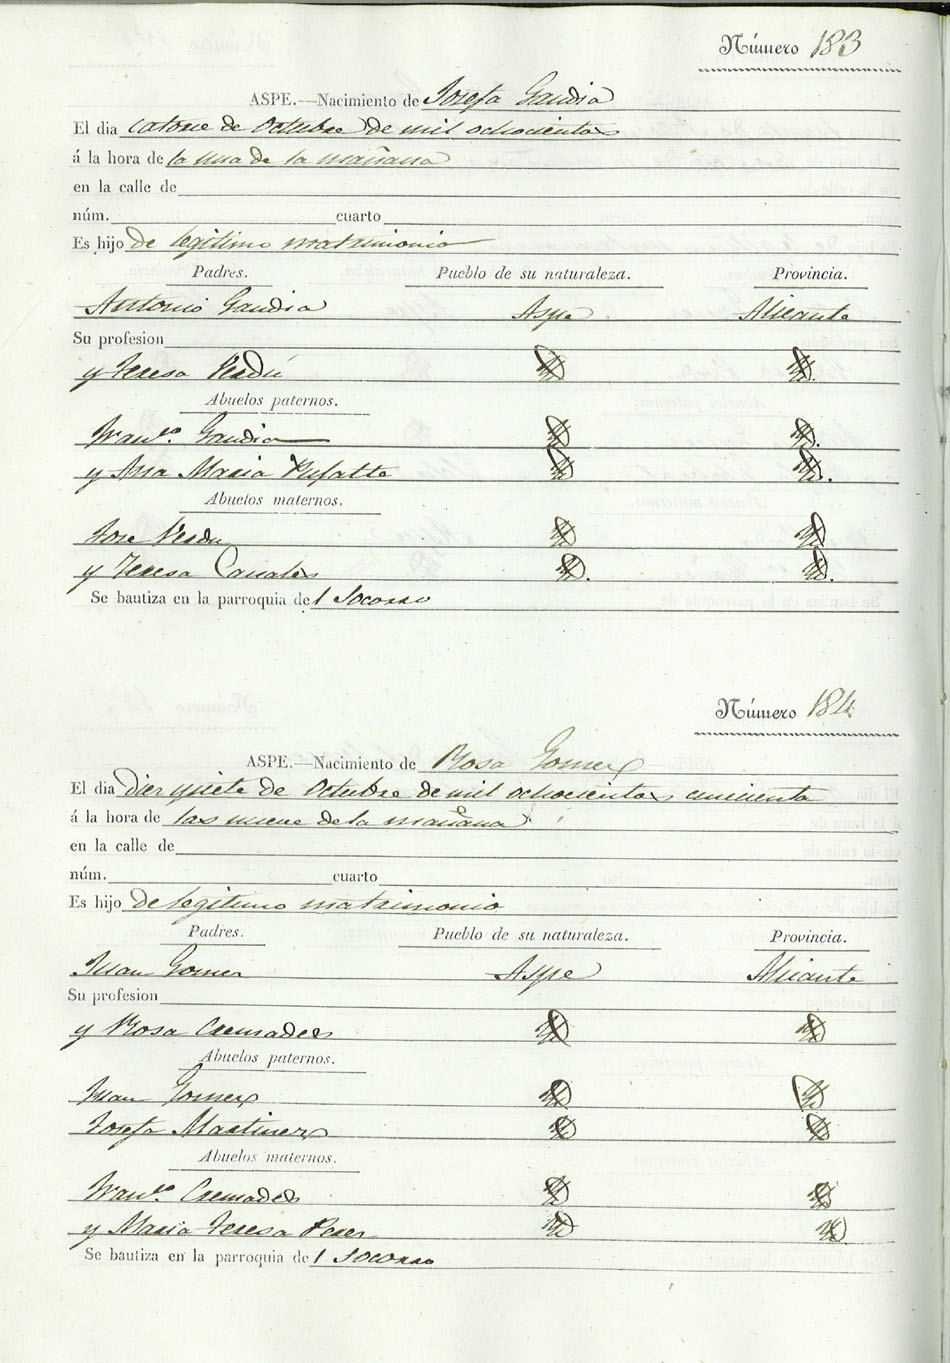 Número 183
ASPE.—Nacimiento de Josefa Gandia
El dia catorse de Octubre de mil ochocientos
á la hora de la una de la mañana
en la calle de
núm. cuarto
Es hijo de legitimo matrimonio
Padres. Pueblo de su naturaleza. Provincia.
Antonio Gandia Aspe Alicante
Su profesion
y Teresa Verdú
Abuelos paternos.
Franco. Gandia
y Ana Maria Pufalte
Abuelos maternos.
Jose Verdu
y Teresa Canales
Se bautiza en la parroquia del Socorro
Número 184
ASPE.—Nacimiento de Rosa Gomez
El dia diez y siete de Octubre de mil ochocientos cincuenta
á la hora de las nueve de la mañana
en la calle de
núm. cuarto
Es hijo de legitimo matrimonio
Padres. Pueblo de su naturaleza. Provincia.
Juan Gomez Aspe Alicante
Su profesion
y Rosa Cremades
Abuelos paternos.
Juan Gomez
Josefa Martinez
Abuelos maternos.
Franco. Cremades
y Maria Teresa Perez
Se bautiza en la parroquia del Socorro